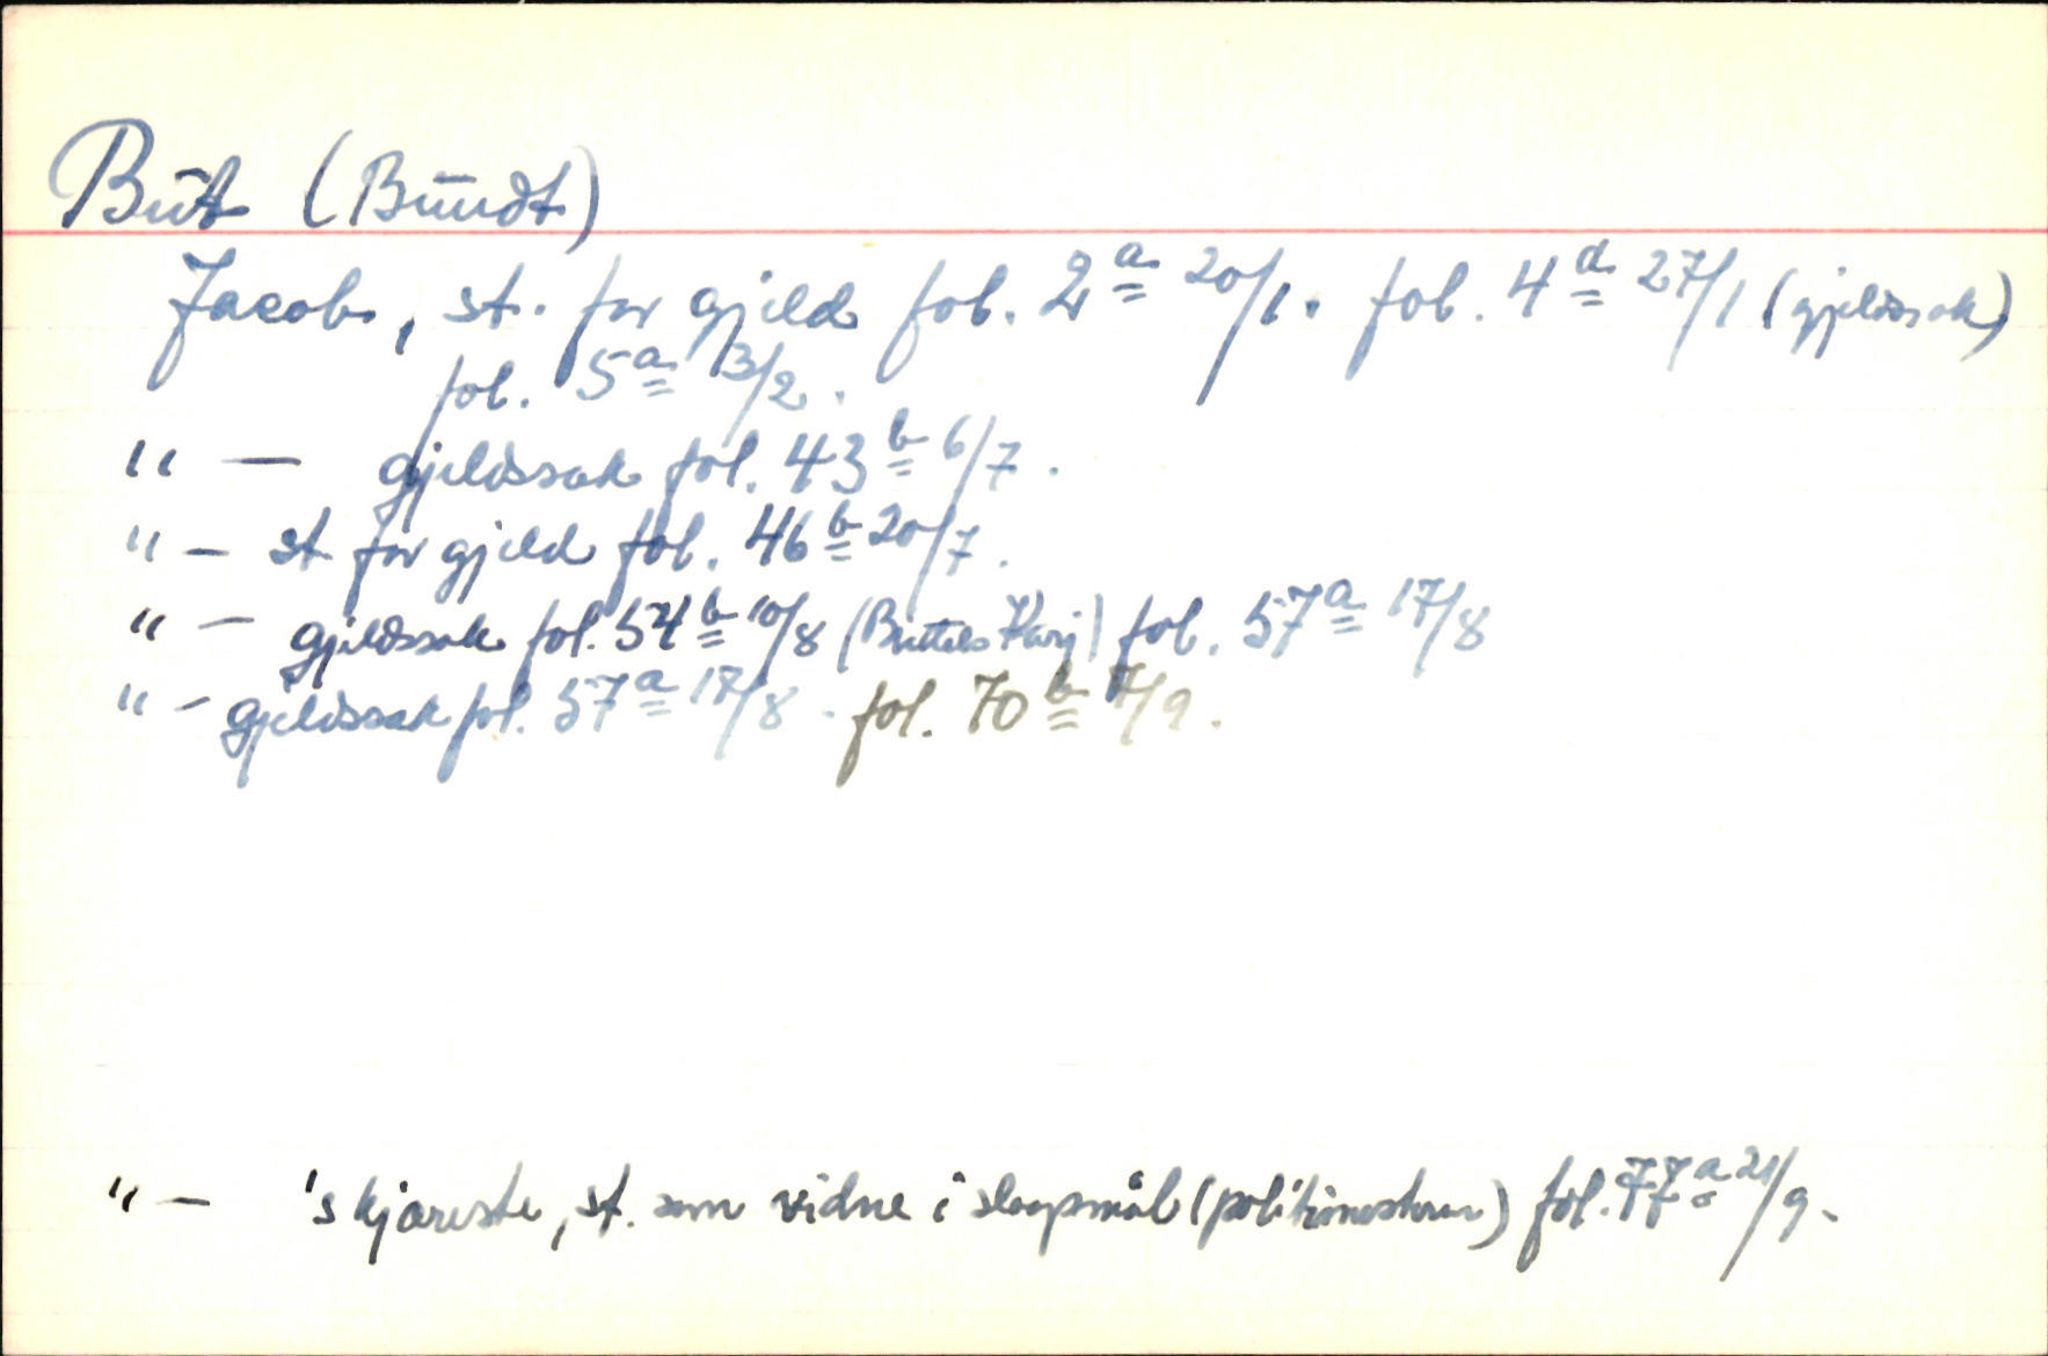 Būt (Būndt)
Jacob, st. for gjeld fol. 2a 20/1. fol. 4a 27/1 (gjeldssak)
fol. 5a 3/2.
" — gjeldssak fol. 43b 6/7.
" — st. for gjeld fol. 46b 20/7.
" — gjeldssak fol. 54b 10/8 fol. 57a 17/8
" — gjeldssak fol. 57a 17/8. fol. 70b 7/9.
" — 's kjæreste, st. som vidne i slagsmål (politimesteren) fol. 77a 21/9.